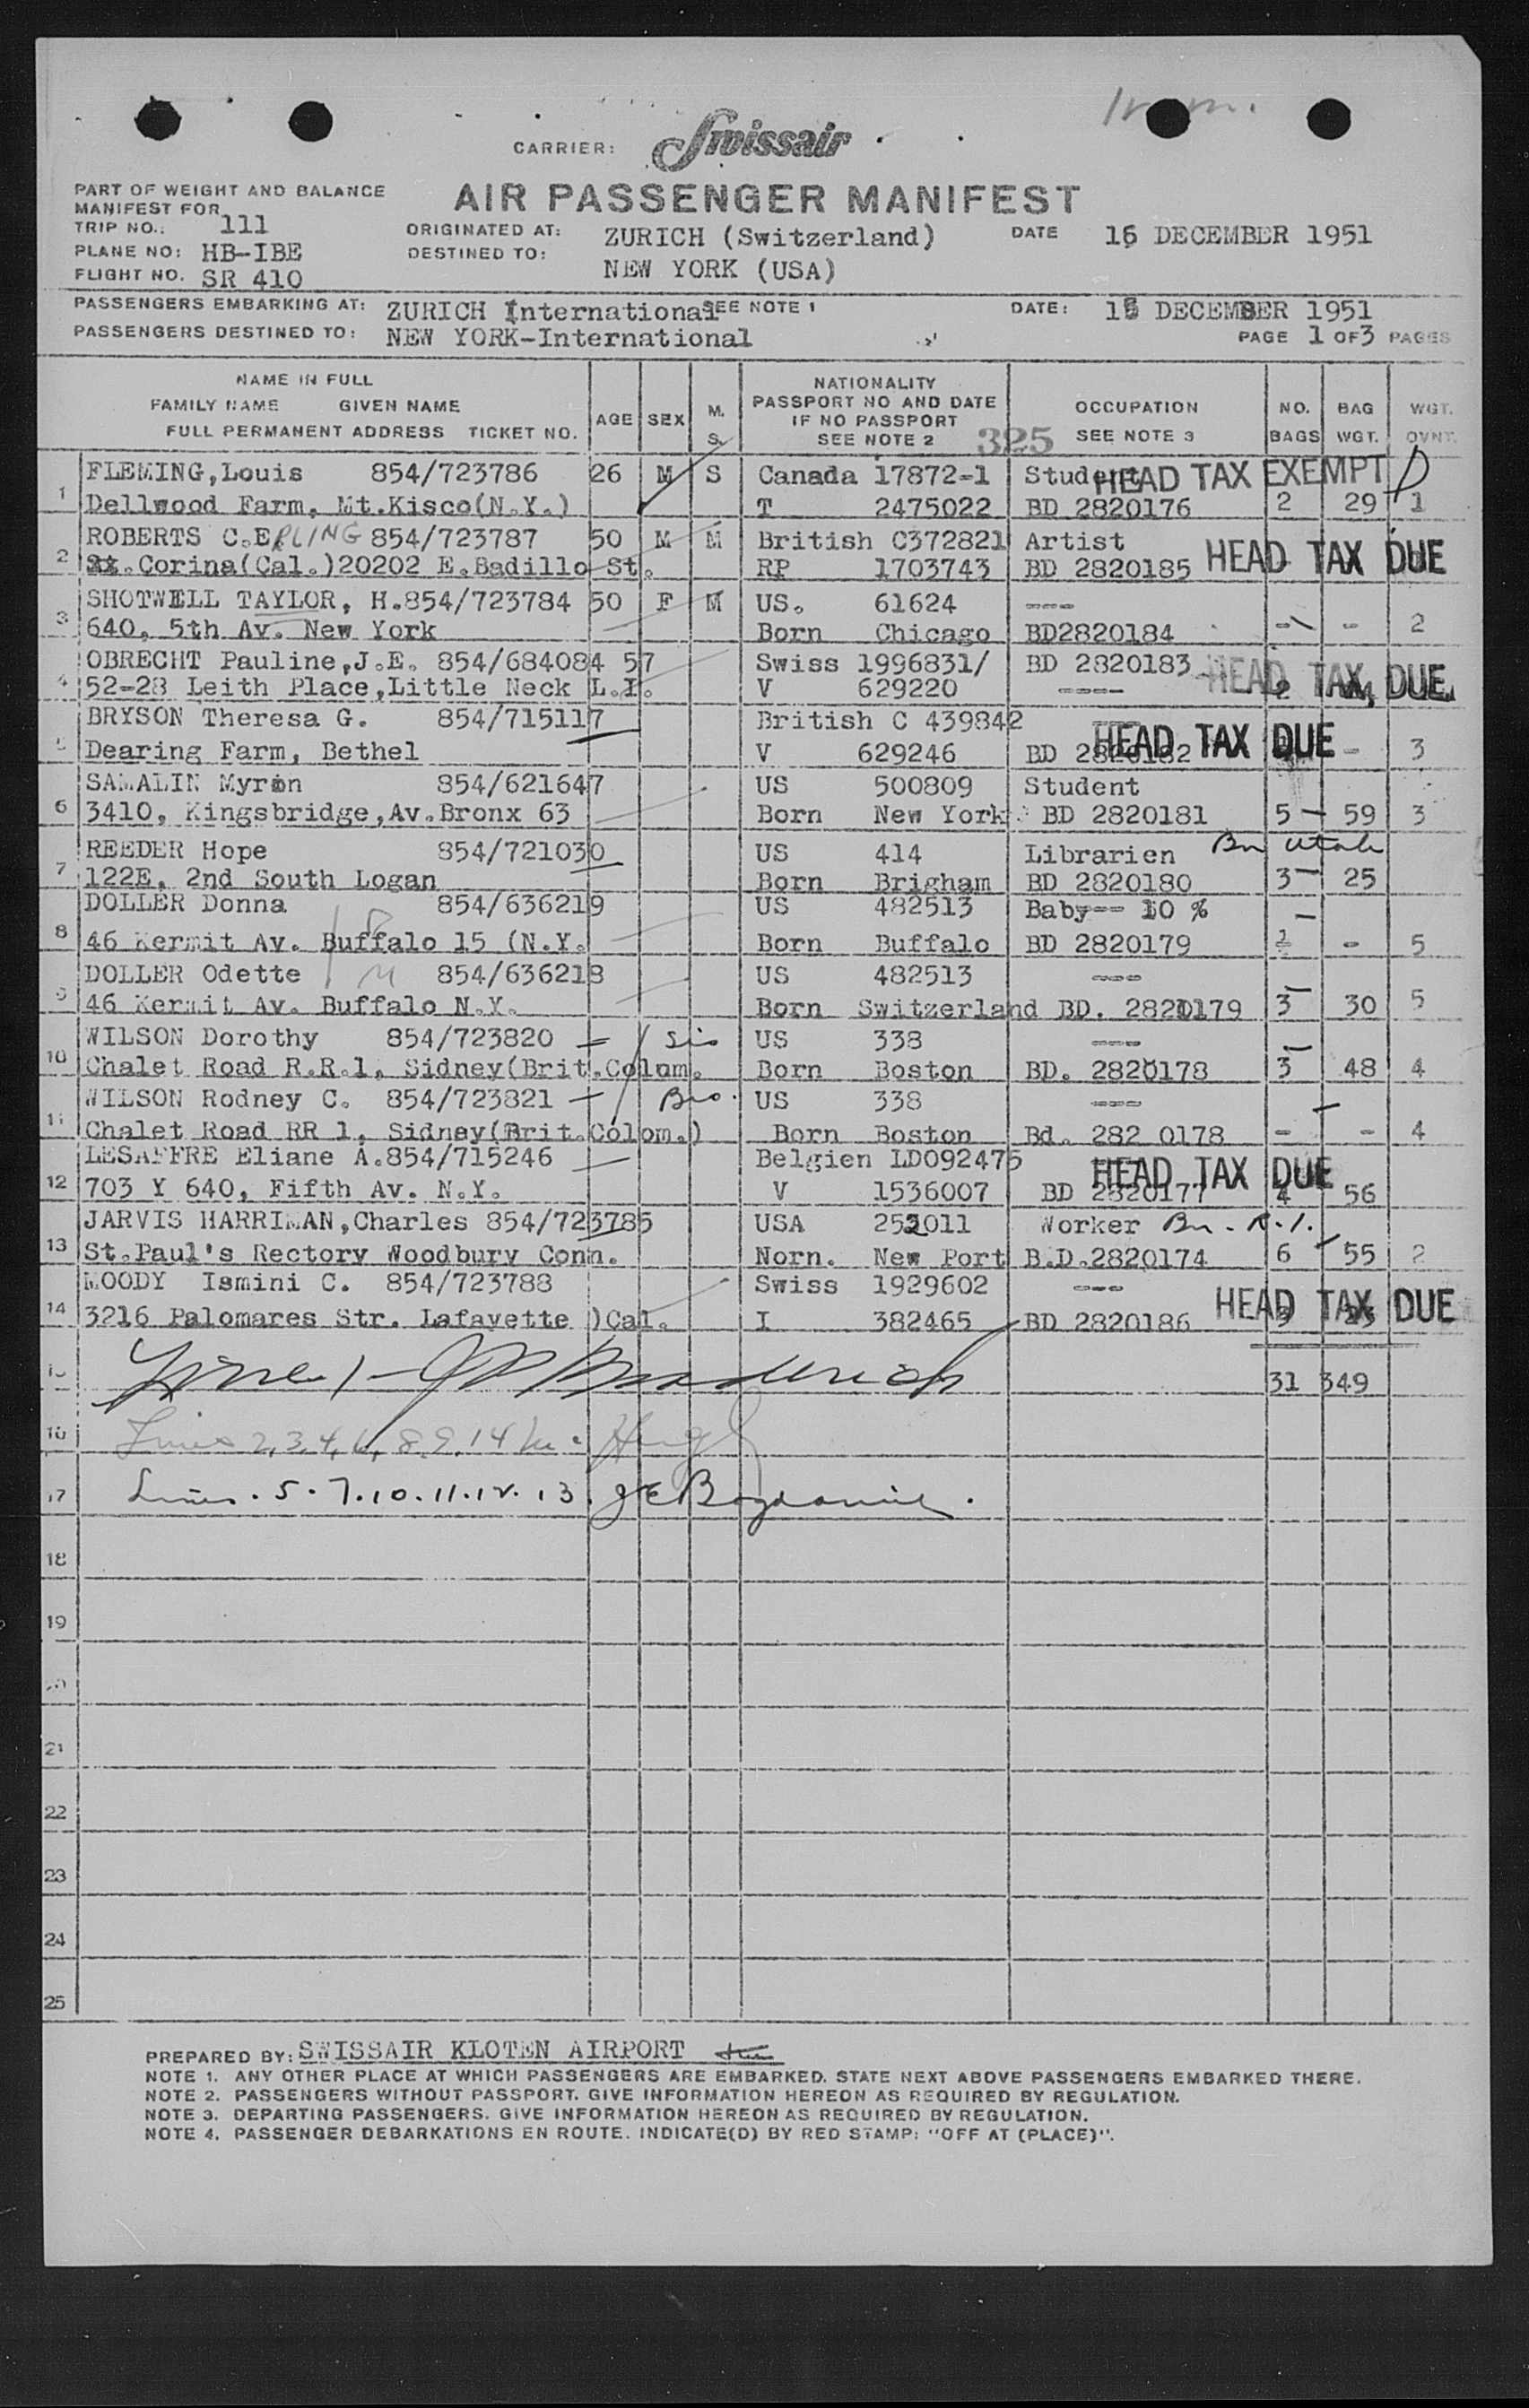 CARRIER: Swissair
PART OF WEIGHT AND BALANCE
MANIFEST FOR
AIR PASSENGER MANIFEST
TRIP NO.: 111
PLANE NO: HB-IBE
FLIGHT NO. SR 410
ORIGINATED AT: ZURICH (Switzerland)
DESTINED TO: NEW YORK (USA)
DATE 16 DECEMBER 1951
PASSENGERS EMBARKING AT: ZURICH International SEE NOTE 1 DATE: 15 DECEMBER 1951
PASSENGERS DESTINED TO: NEW YORK-International PAGE 1 OF 3 PAGES
NAME IN FULL
FAMILY NAME GIVEN NAME
FULL PERMANENT ADDRESS TICKET NO.
AGE SEX M. S.
NATIONALITY
PASSPORT NO AND DATE
IF NO PASSPORT
SEE NOTE 2 325
OCCUPATION
SEE NOTE 3
NO. BAGS
BAG WGT.
WGT. OVNT.
1 FLEMING,Louis 854/723786 26 M S Canada 17872-1 Student HEAD TAX EXEMPT
Dellwood Farm, Mt.Kisco(N.Y.) T 2475022 BD 2820176 2 29 1
2 ROBERTS C.ERLING 854/723787 50 M M British C372821 Artist
St.Corina(Cal.)20202 E.Badillo St. RP 1703743 BD 2820185 HEAD TAX DUE
3 SHOTWELL TAYLOR, H.854/723784 50 F M US. 61624 ---
640, 5th Av. New York Born Chicago BD2820184 - - 2
4 OBRECHT Pauline,J.E. 854/684084 57 Swiss 1996831/ BD 2820183
52-28 Leith Place,Little Neck L.I. V 629220 ---- HEAD TAX DUE
5 BRYSON Theresa G. 854/715117 British C 439842
Dearing Farm, Bethel V 629246 BD 2820182 HEAD TAX DUE - 3
6 SAMALIN Myron 854/621647 US 500809 Student
3410, Kingsbridge,Av.Bronx 63 Born New York BD 2820181 5 - 59 3
7 REEDER Hope 854/721030 US 414 Librarien Bn Utah
122E, 2nd South Logan Born Brigham BD 2820180 3 25
8 DOLLER Donna 854/636219 US 482513 Baby-- 10 %
46 Kermit Av. Buffalo 15 (N.Y. Born Buffalo BD 2820179 - 5
9 DOLLER Odette 854/636218 US 482513 ---
46 Kermit Av. Buffalo N.Y. Born Switzerland BD. 2820179 3 30 5
10 WILSON Dorothy 854/723820 Sis US 338 ---
Chalet Road R.R.1, Sidney(Brit.Colum. Born Boston BD. 2820178 3 48 4
11 WILSON Rodney C. 854/723821 Bro. US 338 ---
Chalet Road RR 1, Sidney(Brit.Colom.) Born Boston Bd. 282 0178 - - 4
12 LESAFFRE Eliane A.854/715246 Belgien LD092475 HEAD TAX DUE
703 Y 640, Fifth Av. N.Y. V 1536007 BD 2820177 4 56
13 JARVIS HARRIMAN,Charles 854/723785 USA 252011 Worker Bn. R.I.
St.Paul's Rectory Woodbury Conn. Norn. New Port B.D.2820174 6 55 2
14 MOODY Ismini C. 854/723788 Swiss 1929602 ---
3216 Palomares Str. Lafayette )Cal. I 382465 BD 2820186 HEAD TAX DUE
15 31 349
16 Lines 2,3,4,6,8,9,14
17 Lines. 5. 7. 10. 11. 12. 13.
18
19
20
21
22
23
24
25
PREPARED BY: SWISSAIR KLOTEN AIRPORT
NOTE 1. ANY OTHER PLACE AT WHICH PASSENGERS ARE EMBARKED. STATE NEXT ABOVE PASSENGERS EMBARKED THERE.
NOTE 2. PASSENGERS WITHOUT PASSPORT. GIVE INFORMATION HEREON AS REQUIRED BY REGULATION.
NOTE 3. DEPARTING PASSENGERS. GIVE INFORMATION HEREON AS REQUIRED BY REGULATION.
NOTE 4. PASSENGER DEBARKATIONS EN ROUTE. INDICATE(D) BY RED STAMP: "OFF AT (PLACE)".